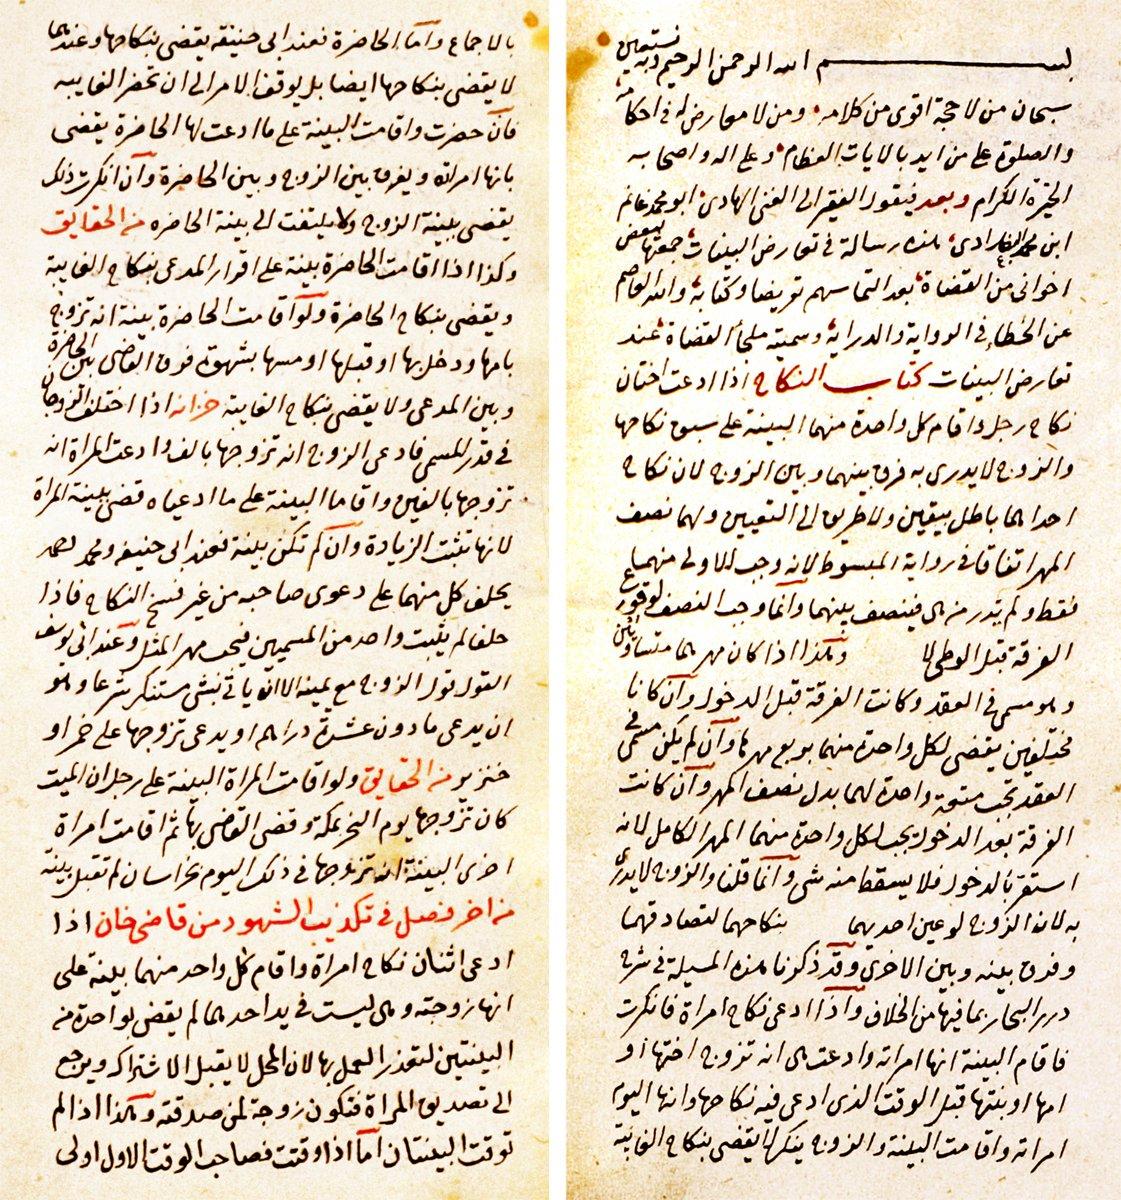 بسم الله الرحمن الرحيم وبه نستعين
سبحان من لا حجة اقوى من كلامه ومن لا معارض له في احكامه
والصلوة على من ايد بالايات العظام وعلى اله واصحابه
الخيرة الكرام وبعد فيقول الفقير الى الغنى الهادى ابو محمد غانم
ابن محمد البغدادى هذه رسالة في تعارض البينات جمعتها لبعض
اخوانى من القضاة بعد التماسهم تعريضا وكتابة والله العاصم
عن الخطاء في الرواية والدراية وسميته ملجأ القضاة عند
تعارض البينات كتاب النكاح اذا ادعت اختان
نكاح رجل واقام كل واحدة منهما البينة على سبق نكاحها
والزوج لا يدرى به فرق بينهما وبين الزوج لان نكاح
احداهما باطل بيقين ولا طريق الى التعيين ولهما نصف
المهر اتفاقا في رواية المبسوط لانه وجب للاولى منهما
فقط ولم يدر من هى فينصف بينهما وانما وجب النصف لوقوع
الفرقة قبل الوطى لا وهكذا اذا كان مهرهما متساويين
وهو مسمى في العقد وكانت الفرقة قبل الدخول وان كانا
مختلفين يقضى لكل واحدة منهما بربع مهرها وان لم يكن مسمى في
العقد تجب متعة واحدة لهما بدل نصف المهر وان كانت
الفرقة بعد الدخول يجب لكل واحدة منهما المهر الكامل لانه
استقر بالدخول فلا يسقط منه شى وانما قلنا والزوج لا يدرى
به لان الزوج لو عين احديهما بنكاحهما لتصادقهما
وفرق بينه وبين الاخرى وقد ذكرنا هذه المسيلة في شرح
درر البحار بما فيها من الخلاف واذا ادعى نكاح امراة فانكرت
فاقام البينة انها امراته وادعت هى انه تزوج اختها او
امها او بنتها قبل الوقت الذى ادعى فيه نكاحها وانها اليوم
امراته واقامت البينة والزوج ينكر لا يقضى بنكاح الغائبة
بالاجماع واما الحاضرة فعند ابى حنيفه يقضى بنكاحها وعندهما
لا يقضى بنكاحها ايضا بل يوقف الامر الى ان تحضر الغايبه
فان حضرت واقامت البينة على ما ادعت لها الحاضرة يقضى
بانها امراته ويفرق بين الزوج وبين الحاضرة وان انكرت ذلك
يقضى ببينة الزوج ولا يلتفت الى بينة الحاضره من الحقايق
وكذا اذا اقامت الحاضرة بينة على اقرار المدعى بنكاح الغايبة
ويقضى بنكاح الحاضرة ولو اقامت الحاضرة بينة انه تزوج
بامها ودخل بها او قبلها او مسها بشهوة فرق القاضى بين الحاضرة
وبين المدعى ولا يقضى بنكاح الغايبة خزانه اذا اختلف الزوجان
في قدر المسمى فادعى الزوج انه تزوجها بالف وادعت المراة انه
تزوجها بالفين واقاما البينة على ما ادعياه قضى ببينة المراة
لانها تثبت الزيادة وان لم تكن بينة فعند ابى حنيفه ومحمد
يحلف كل منهما على دعوى صاحبه من غير فسخ النكاح فاذا
حلفا لم يثبت واحد من المسميين فيجب مهر المثل وعند ابى يوسف
القول قول الزوج مع يمينه الا ان ياتى بشى مستنكر شرعا وهو
ان يدعى ما دون عشرة دراهم او يدعى تزوجها على خمر او
خنزير من الحقايق ولو اقامت المراة البينة على رجل ان الميت
كان تزوجها يوم النحر بمكة وقضى القاضى بها ثم اقامت امراة
اخرى البينة انه تزوجها في ذلك اليوم بخراسان لم تقبل بينة
من اخر فصل في تكذيب الشهود من قاضى خان اذا
ادعى اثنان نكاح امراة واقام كل واحد منهما بينة على
انها زوجته وهى ليست في يد احدهما لم يقض بواحدة من
البينتين لتعذر العمل بها لان المحل لا يقبل الاشتراك ويرجع
الى تصديق المراة فتكون زوجة لمن صدقته وهكذا اذا لم
توقت البينتان اما اذا وقتت فصاحب الوقت الاول اولى